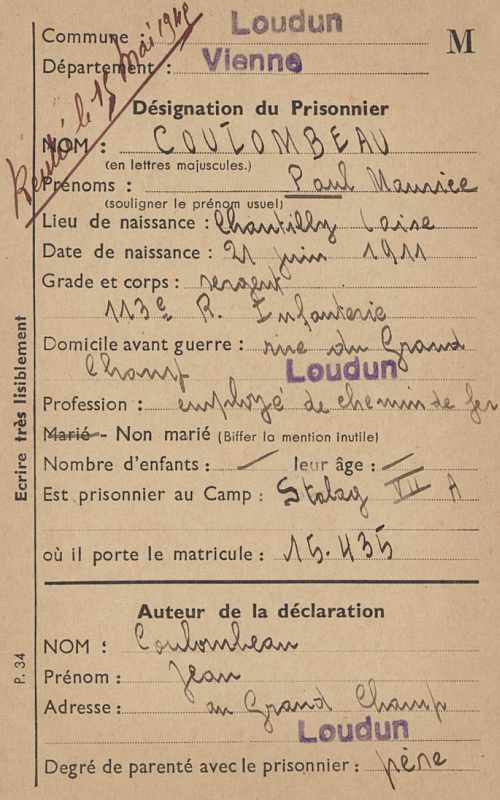 Rentré le 15 mai 1942
Commune : Loudun
M
Département : Vienne
Désignation du Prisonnier
NOM : COULOMBEAU
(en lettres majuscules.)
Prénoms : Paul Maurice
(souligner le prénom usuel)
Lieu de naissance : Chantilly (oise
Date de naissance : 21 juin 1911
Grade et corps : sergent
113e R. Infanterie
Domicile avant guerre : rue du Grand
Champ Loudun
Profession : employé de chemin de fer
Marié - Non marié (Biffer la mention inutile)
Nombre d'enfants : / leur âge : /
Est prisonnier au Camp : Stalag VII A
où il porte le matricule : 15.435
Auteur de la déclaration
NOM : Coulombeau
Prénom : Jean
Adresse : au Grand Champ
Loudun
Degré de parenté avec le prisonnier : père
Ecrire très lisiblement
P. 34